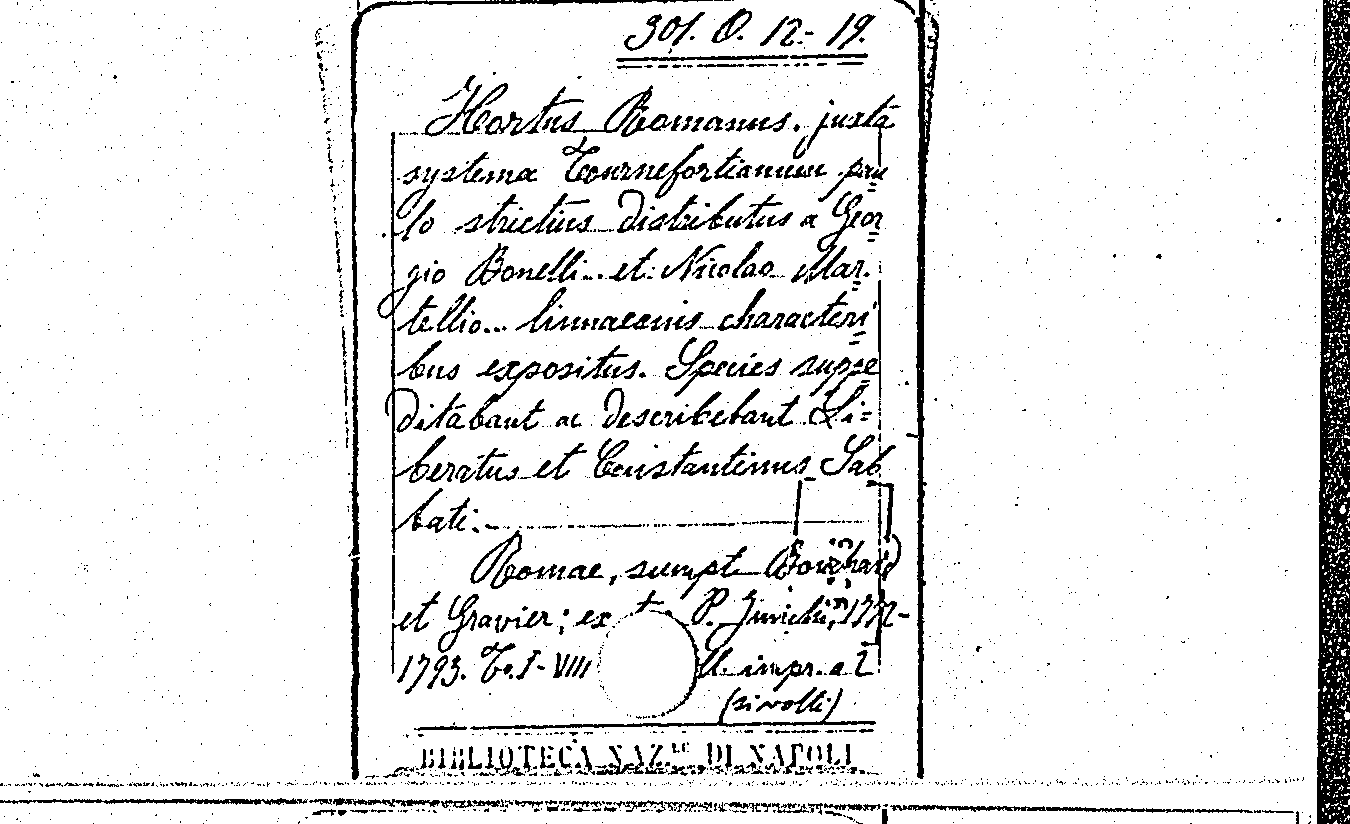 301. O. 12.- 19.
Hortus Romanus. juxta
systema Tournefortianum pau
lo strictius distributus a Geor
gio Bonelli.. et Nicolao Mar.
tellio... linnaeanis characteri
bus expositus. Species suppe
ditabant ac describebant Li-
beratus et Constantinus Sab
bati.
Romae, sumpt. Bouchard
et Gravier; ex P. Junchi, 1772-
1793. To. I-VIII impr. a 2
(si volti)
BIBLIOTECA NAZ.LE DI NAPOLI